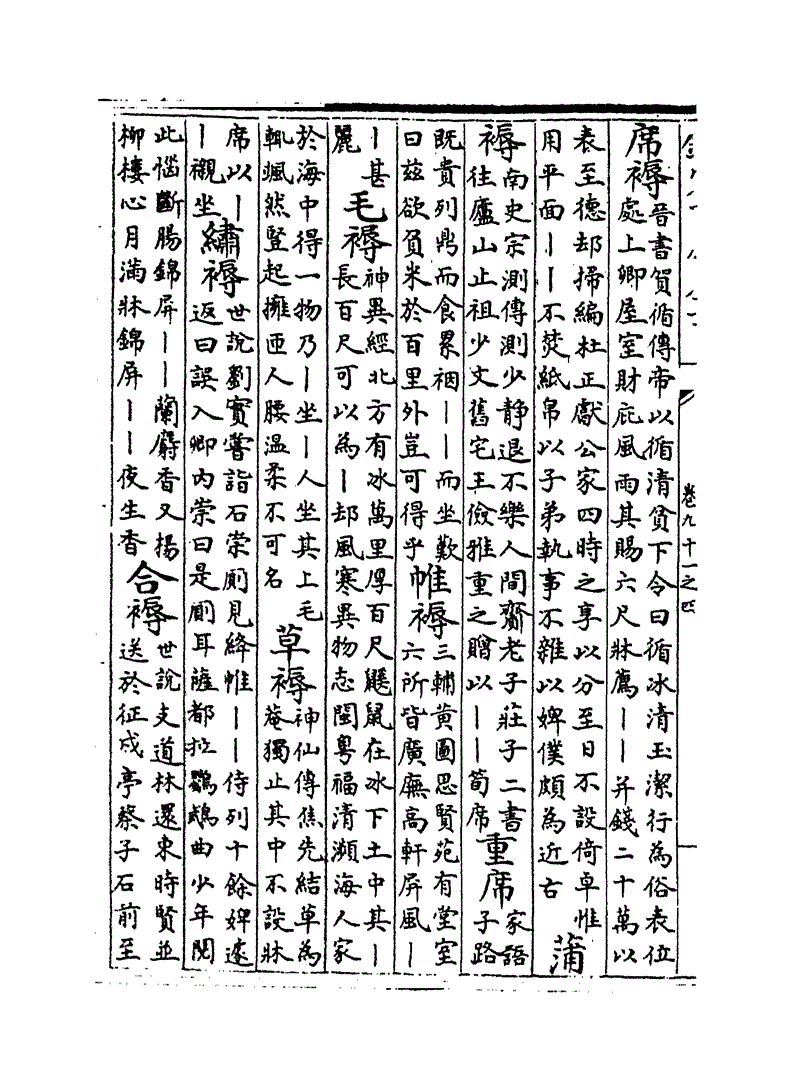 卷九十一之四
席褥
晉書賀循傳帝以循清貧下令曰循冰清玉潔行為俗表位
處上卿屋室財庇風雨其賜六尺牀薦丨丨并錢二十萬以
表至德却掃編杜正獻公家四時之享以分至日不設倚卓惟
用平面丨丨不焚紙帛以子弟執事不雜以婢僕頗為近古
蒲
褥
南史宗測傳測少静退不樂人間齎老子莊子二書
往廬山止祖少文舊宅王儉雅重之贈以丨丨荀席
重席
家語
子路
既貴列鼎而食累裀丨丨而坐歎
曰兹欲負米於百里外豈可得乎
帷褥
三輔黄圖思賢苑有堂室
六所皆廣廡高軒屏風丨
丨甚
麗
毛褥
神異經北方有冰萬里厚百尺鼷鼠在冰下土中其丨
長百尺可以為丨却風寒異物志閩粤福清瀕海人家
於海中得一物乃丨坐丨人坐其上毛
輒颯然竪起擁匝人腰温柔不可名
草褥
神仙傳焦先結草為
菴獨止其中不設牀
席以丨
丨襯坐
繡褥
世說劉實嘗詣石崇厠見絳帷丨丨侍列十餘婢遽
返曰誤入卿内崇曰是厠耳薩都拉鸚鵡曲少年閱
此惱斷腸錦屏丨丨蘭麝香又楊
柳樓心月滿牀錦屏丨丨夜生香
合褥
世說支道林還東時賢並
送於征戍亭蔡子石前至